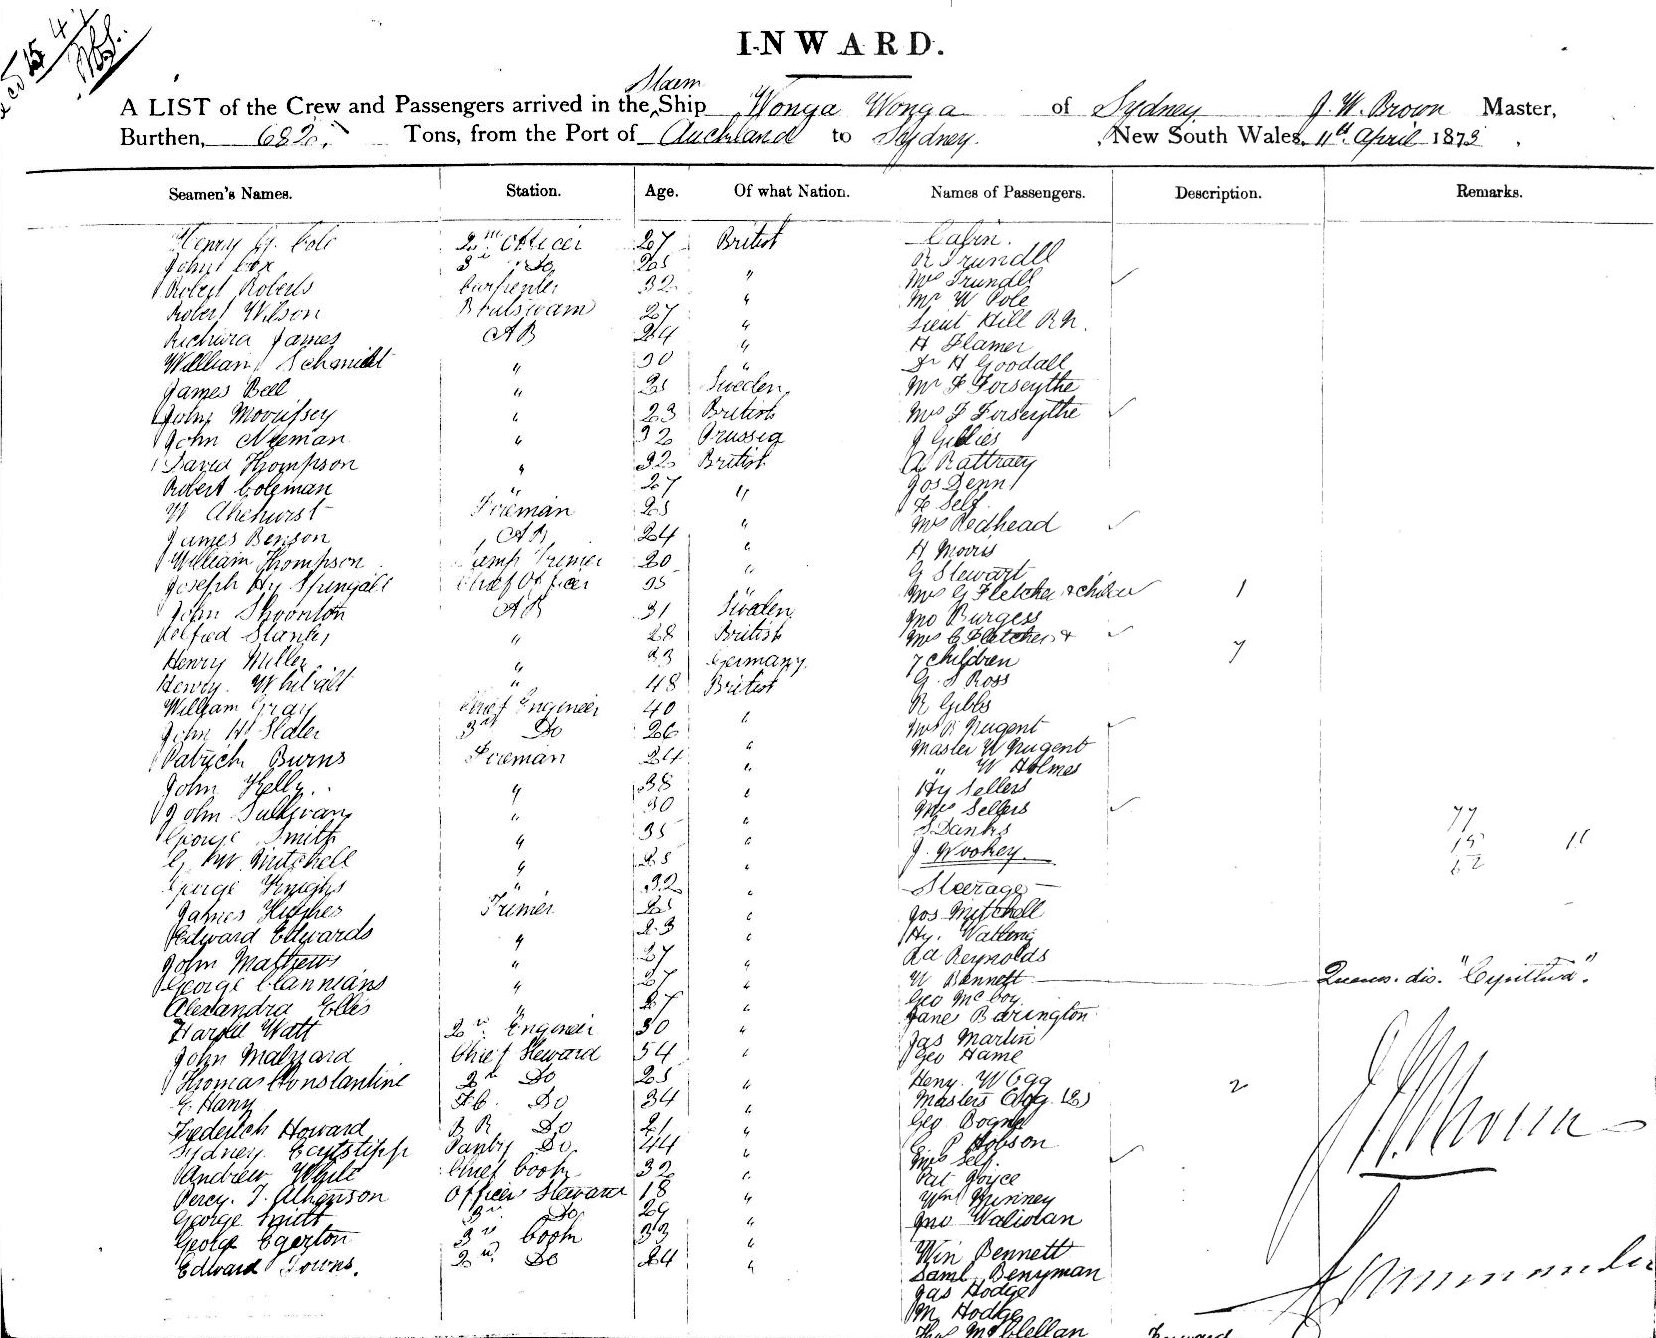 INWARD.
Steam
A LIST of the Crew and Passengers arrived in the Ship Wonga Wonga of Sydney J. W. Brown Master,
Burthen, 682 Tons, from the Port of Auckland to Sydney. New South Wales, 11th April 1873
Seamen's Names. Station. Age. Of what Nation. Names of Passengers. Description. Remarks.
Henry G. Cole 2nd Officer 27 British Cabin.
John Cox 3rd Do 25 " R Trundll
Robert Roberts Carpenter 32 " Mrs Trundll
Robert Wilson Boatswain 27 " Mr W Pole
Lieut Hill R.N.
Richard James AB 24 " H Flamer
William Schmidt " 30 " Dr H Goodall
James Bell " 25 Sweden Mr F Forseythe
John Morrissey " 23 British Mrs F Forseythe
John Neeman " 32 Prussia J Gillies
David Thompson " 32 British A Rattray
Robert Coleman " 27 " Jos Denn
W Akehurst Fireman 25 F Self
James Benson AB 24 " Mrs Redhead
William Thompson Lamp Trimer 20 " H Morris
Joseph Hy Chief Officer 35 " G Stewart
Mrs G Fletcher & child 1
John AB 31 Sweden Jno Burgess
Alfred Stanley " 28 British Mrs C Fletcher &
Henry Miller " 33 Germany 7 children 7
Henry " 48 British G. S Ross
William Gray Chief Engineer 40 " R Gibbs
John H Slater 3rd Do 26 Mrs Nugent
Patrick Burns Fireman 24 " Master W Nugent
" W Holmes
John Kelly " 38 " Hy Sellers
John Sullivan " 30 Mrs Sellers 77
George Smith " 35 " S Danks 15 11
G W Mitchell " 25 " J. Wookey 62
George Knights " 32 " Steerage
James Hughes Trimer 25 " Jos Mitchell
Edward Edwards " 23 " Hy.
John Mathews " 27 " Rd Reynolds
George " 27 " W Bennett
Alexandra Ellis " 27 " Geo McCoy
Jane Barington
Harold Watt 2nd Engineer 30 " Jas Martin
John Chief Steward 54 " Geo Hame
Thomas Constantine 2nd Do 25 " Heny. W Ogg 2
E Hany Do 34 " Masters Ogg (2)
Frederick Howard Do 21 "
Sydney Pantry Do 44 " Hobson
Mrs Self
Andrew White Chief Cook 32 " Pat Joyce
Percy. J. Atkinson Officers Steward 18 "
George Smith 3rd Do 29 " Jno
George Egerton 3rd Cook 33 "
Edward Towns. 2nd Do 24 " Wm Bennett
Saml. Benyman
Jas Hodge
M Hodge
McClellan